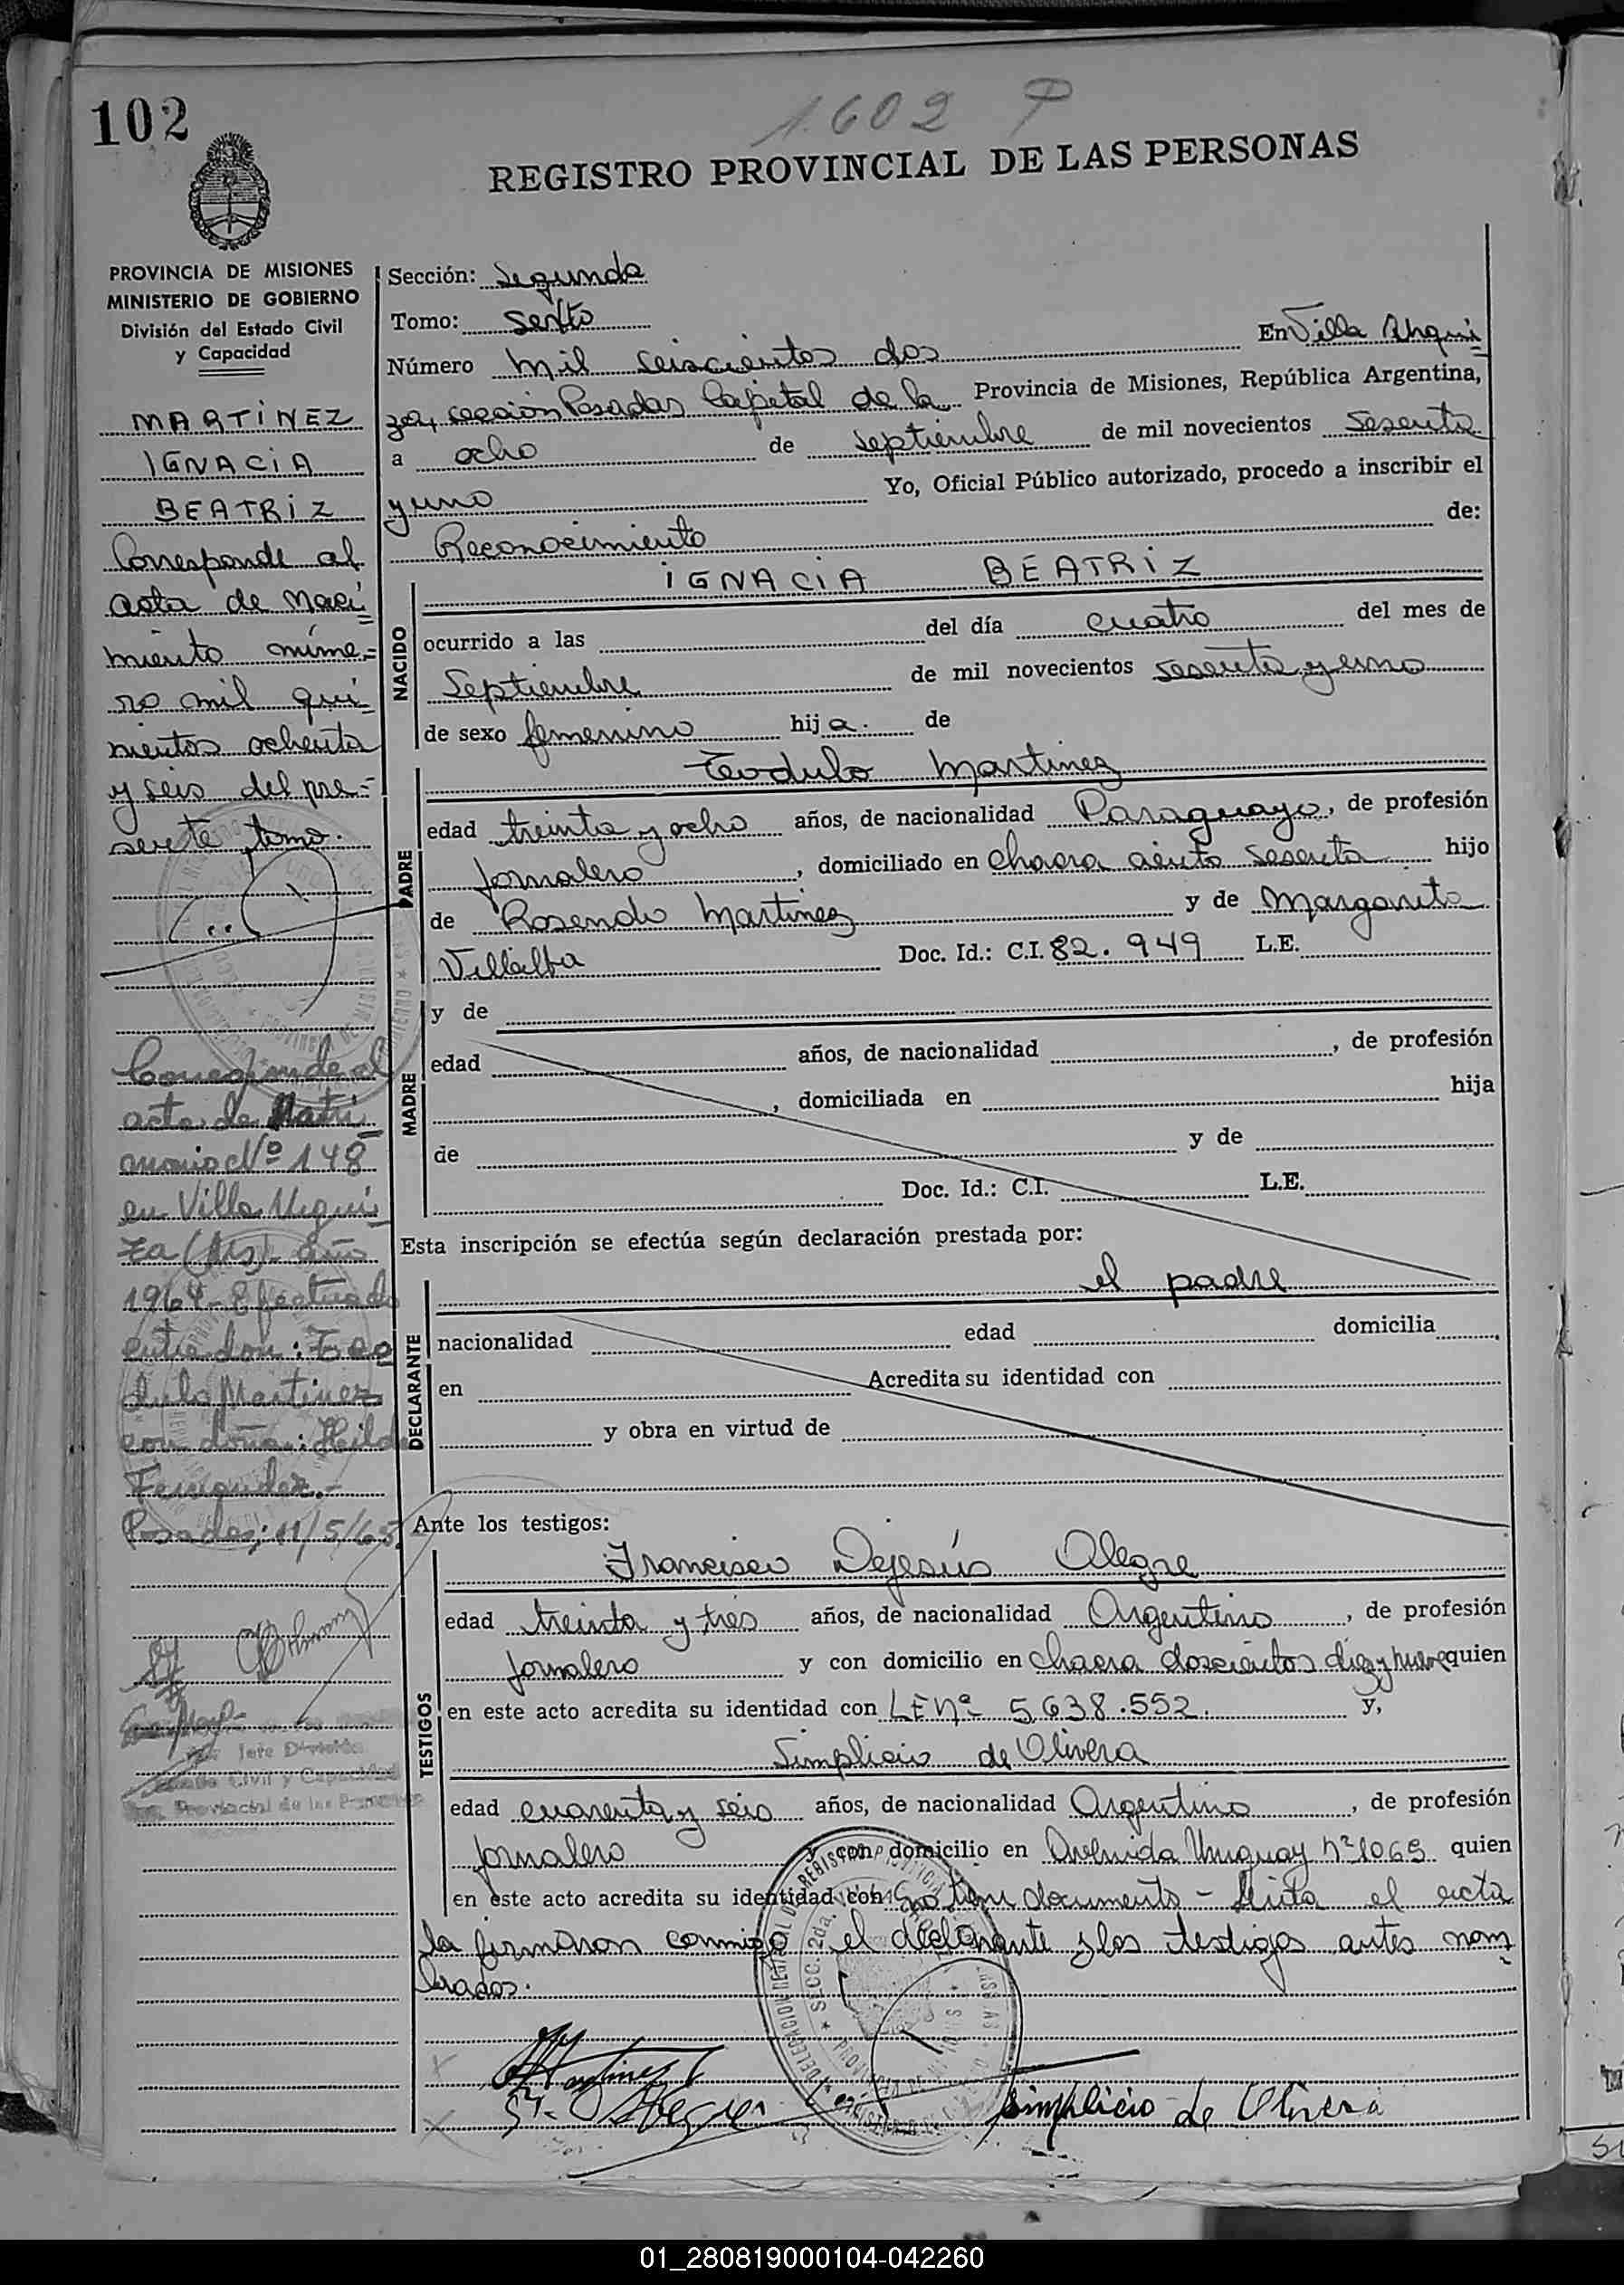 102
1.602 P
REGISTRO PROVINCIAL DE LAS PERSONAS
PROVINCIA DE MISIONES
MINISTERIO DE GOBIERNO
División del Estado Civil
y Capacidad
MARTINEZ
IGNACIA
BEATRIZ
Corresponde al
acta de naci
miento núme=
ro mil qui
nientos ochenta
y seis del pre=
sente tomo.
Corresponde al
acta de Matri
monio Nº 148
en Villa Urqui
za (Ms) año
1964 - Efectuado
entre don: Teo
dulo Martinez
con doña: Hilda
Fernandez.-
Posadas; 11/5/65.
Jefe División
Estado Civil y Capacidad
Reg. Provincial de las Personas
Sección: Segunda
Tomo: Sexto
Número mil seiscientos dos En Villa Urqui
za, sección Posadas Capital de la Provincia de Misiones, República Argentina,
a ocho de septiembre de mil novecientos sesenta
y uno Yo, Oficial Público autorizado, procedo a inscribir el
Reconocimiento de:
NACIDO
IGNACIA BEATRIZ
ocurrido a las del día cuatro del mes de
Septiembre de mil novecientos sesenta y uno
de sexo femenino hija. de
PADRE
Teodulo Martinez
edad treinta y ocho años, de nacionalidad Paraguayo, de profesión
Jornalero, domiciliado en Chacra ciento sesenta hijo
de Rosendo Martinez y de Margarita
Villalba Doc. Id.: C.I. 82.949 L.E.
MADRE
y de
edad años, de nacionalidad , de profesión
, domiciliada en hija
de y de
Doc. Id.: C.I. L.E.
Esta inscripción se efectúa según declaración prestada por:
el padre
DECLARANTE
nacionalidad edad domicilia
en Acredita su identidad con
y obra en virtud de
Ante los testigos:
TESTIGOS
Francisco Dejesús Alegre
edad treinta y tres años, de nacionalidad Argentino, de profesión
Jornalero y con domicilio en Chacra doscientos diez y nueve quien
en este acto acredita su identidad con LE nº 5.638.552. y,
Simplicio de Olivera
edad cuarenta y seis años, de nacionalidad Argentino, de profesión
Jornalero y con domicilio en Avenida Uruguay nº 1065 quien
en este acto acredita su identidad con no tiene documento - Leida el acta
la firmaron conmigo el declarante y los testigos antes nom
brados.
Simplicio de Olivera
01_280819000104-042260